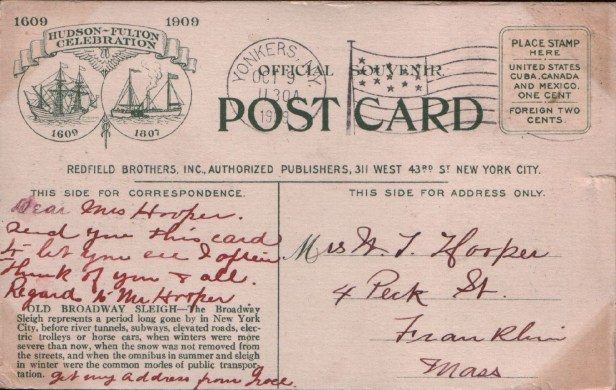 1609 1909
HUDSON-FULTON
CELEBRATION
1609 1807
YONKERS, N.Y.
OCT 9
11 30A
OFFICIAL SOUVENIR.
POST CARD
PLACE STAMP
HERE
UNITED STATES
CUBA, CANADA
AND MEXICO.
ONE CENT
FOREIGN TWO
CENTS.
REDFIELD BROTHERS, INC., AUTHORIZED PUBLISHERS, 311 WEST 43RD ST NEW YORK CITY.
THIS SIDE FOR CORRESPONDENCE.
Dear Mrs Hooper.
Send you this card
to let you see I often
think of you & all.
Regards to Mr Hooper
OLD BROADWAY SLEIGH—The Broadway
Sleigh represents a period long gone by in New York
City, before river tunnels, subways, elevated roads, elec-
tric trolleys or horse cars, when winters were more
severe than now, when the snow was not removed from
the streets, and when the omnibus in summer and sleigh
in winter were the common modes of public transpor-
tation.
get my address from
THIS SIDE FOR ADDRESS ONLY.
Mrs W. T. Hooper
4 Peck St.
Franklin
Mass